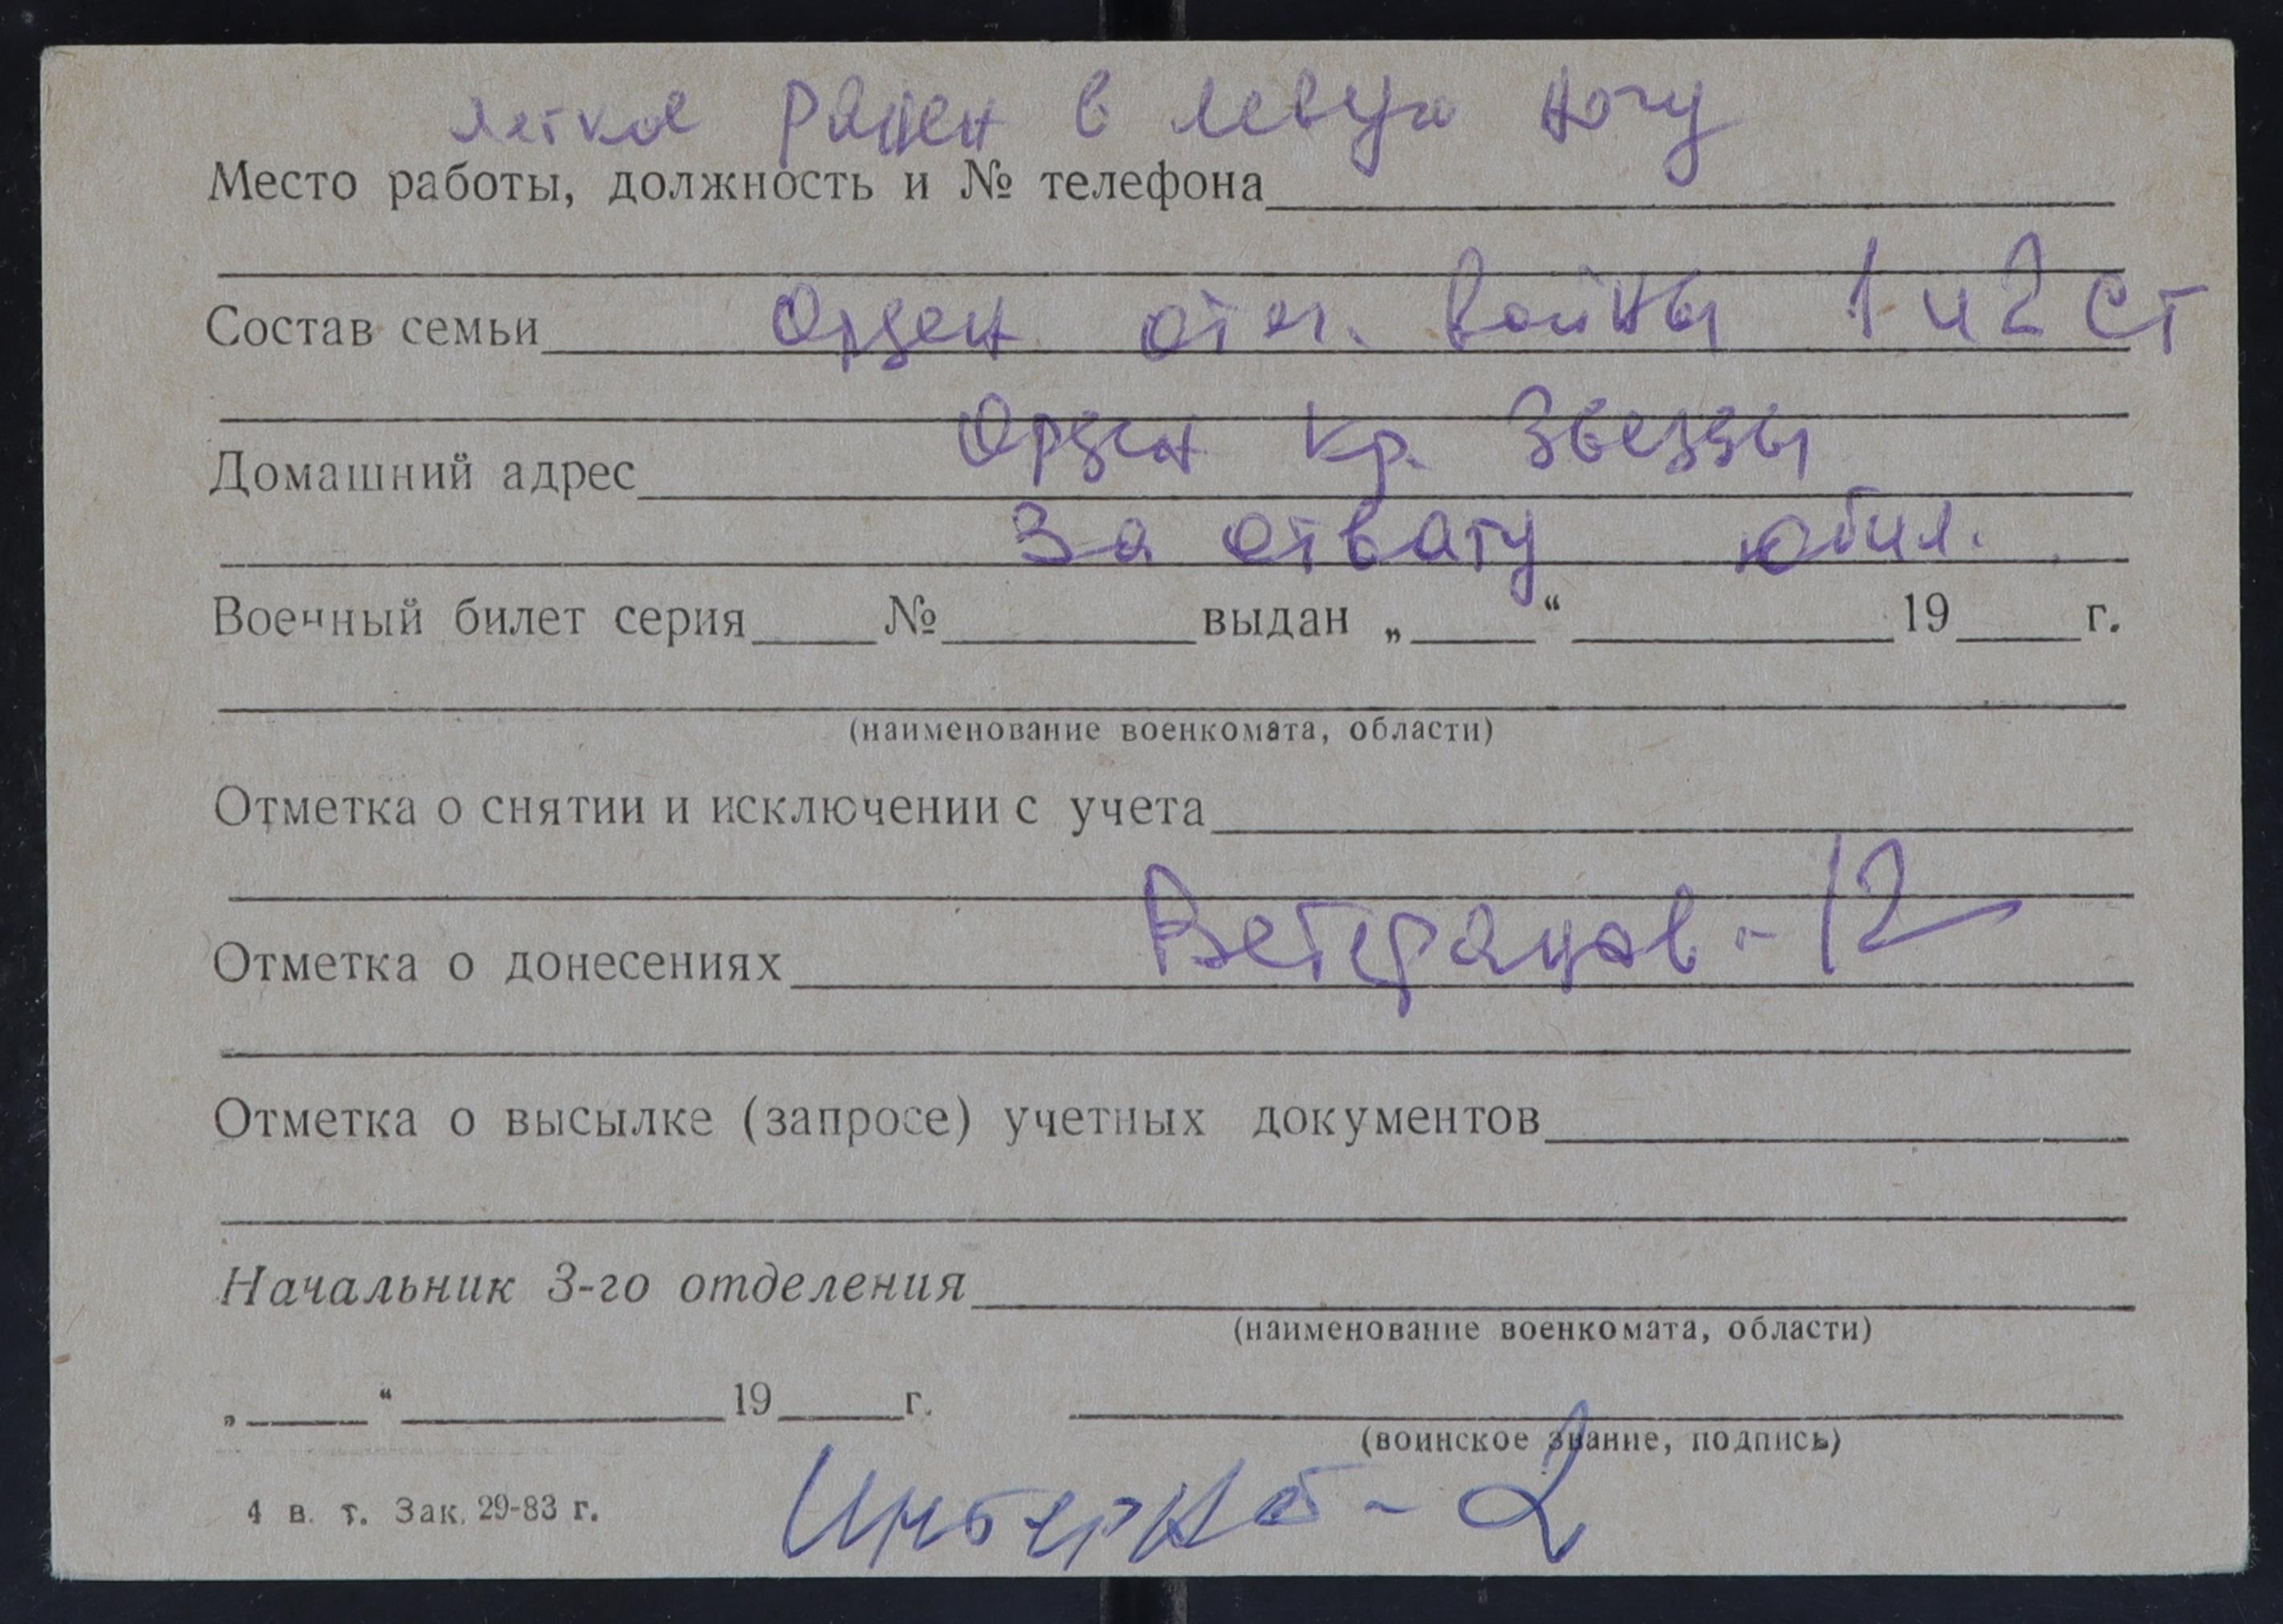 легкое ранен в левую ногу
Место работы, должность и № телефона
Состав семьи Орден отеч. войны 1 и 2 ст
Орден Кр. Звезды
Домашний адрес
За отвагу юбил.
Военный билет серия № выдан „ “ 19 г.
(наименование военкомата, области)
Отметка о снятии и исключении с учета
Ветеранов-12
Отметка о донесениях
Отметка о высылке (запросе) учетных документов
Начальник 3-го отделения
(наименование военкомата, области)
„ “ 19 г.
(воинское звание, подпись)
4 в. т. Зак. 29-83 г. Интернат-2